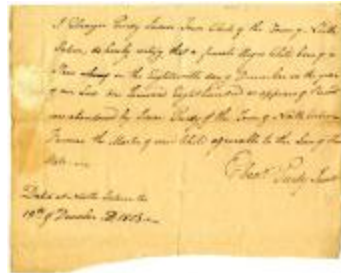 I Ebenezer Purdy Junior Town Clerk of the Town of North
Salem, do hereby certify that a female Negro Child being a
Slave in the Eighteenth day of December in the year
of our Lord one Thousand Eight hundred as appears of Record
was abandoned by Isaac Purdy of the Town of North Salem
Farmer the Master of said Child agreeable to the Law of this
State
Eben^r Purdy Junr
Dated at North Salem the
19th of December AD 1803